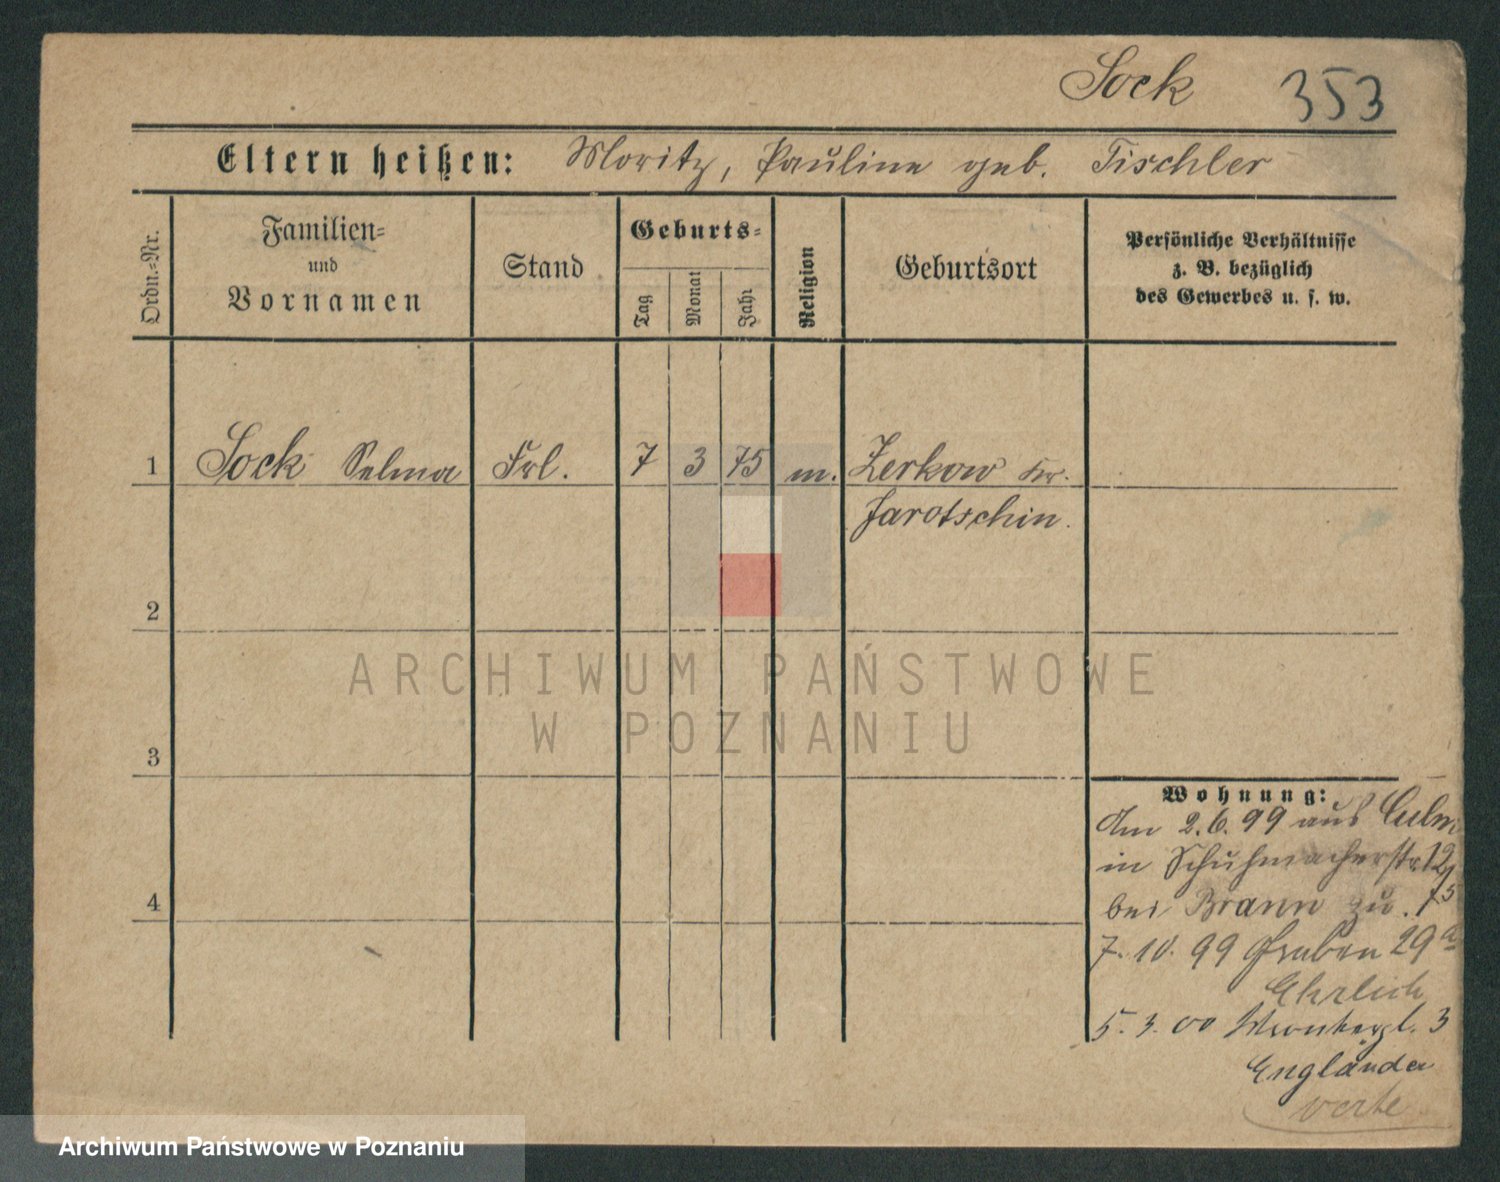 Sock 353
Eltern heißen: Moritz, Pauline geb. Tischler
Ordn.-Nr.
Familien-
und
Vornamen
Stand
Geburts-
Tag
Monat
Jahr
Religion
Geburtsort
Persönliche Verhältnisse
z. B. bezüglich
des Gewerbes u. s. w.
1 Sock Selma Frl. 7 3 75 m. Zerkow Kr.
Jarotschin.
2
ARCHIWUM PAŃSTWOWE
W POZNANIU
3
Wohnung:
Am 2.6.99 aus Culm
in Schuhmacherstr. 12
bei Brann zu.
7. 10. 99 Graben 29a
Ehrlich
5. 3. 00 3
Engländer
verte
4
Archiwum Państwowe w Poznaniu